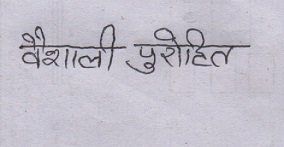 वैशाली पुरोहित